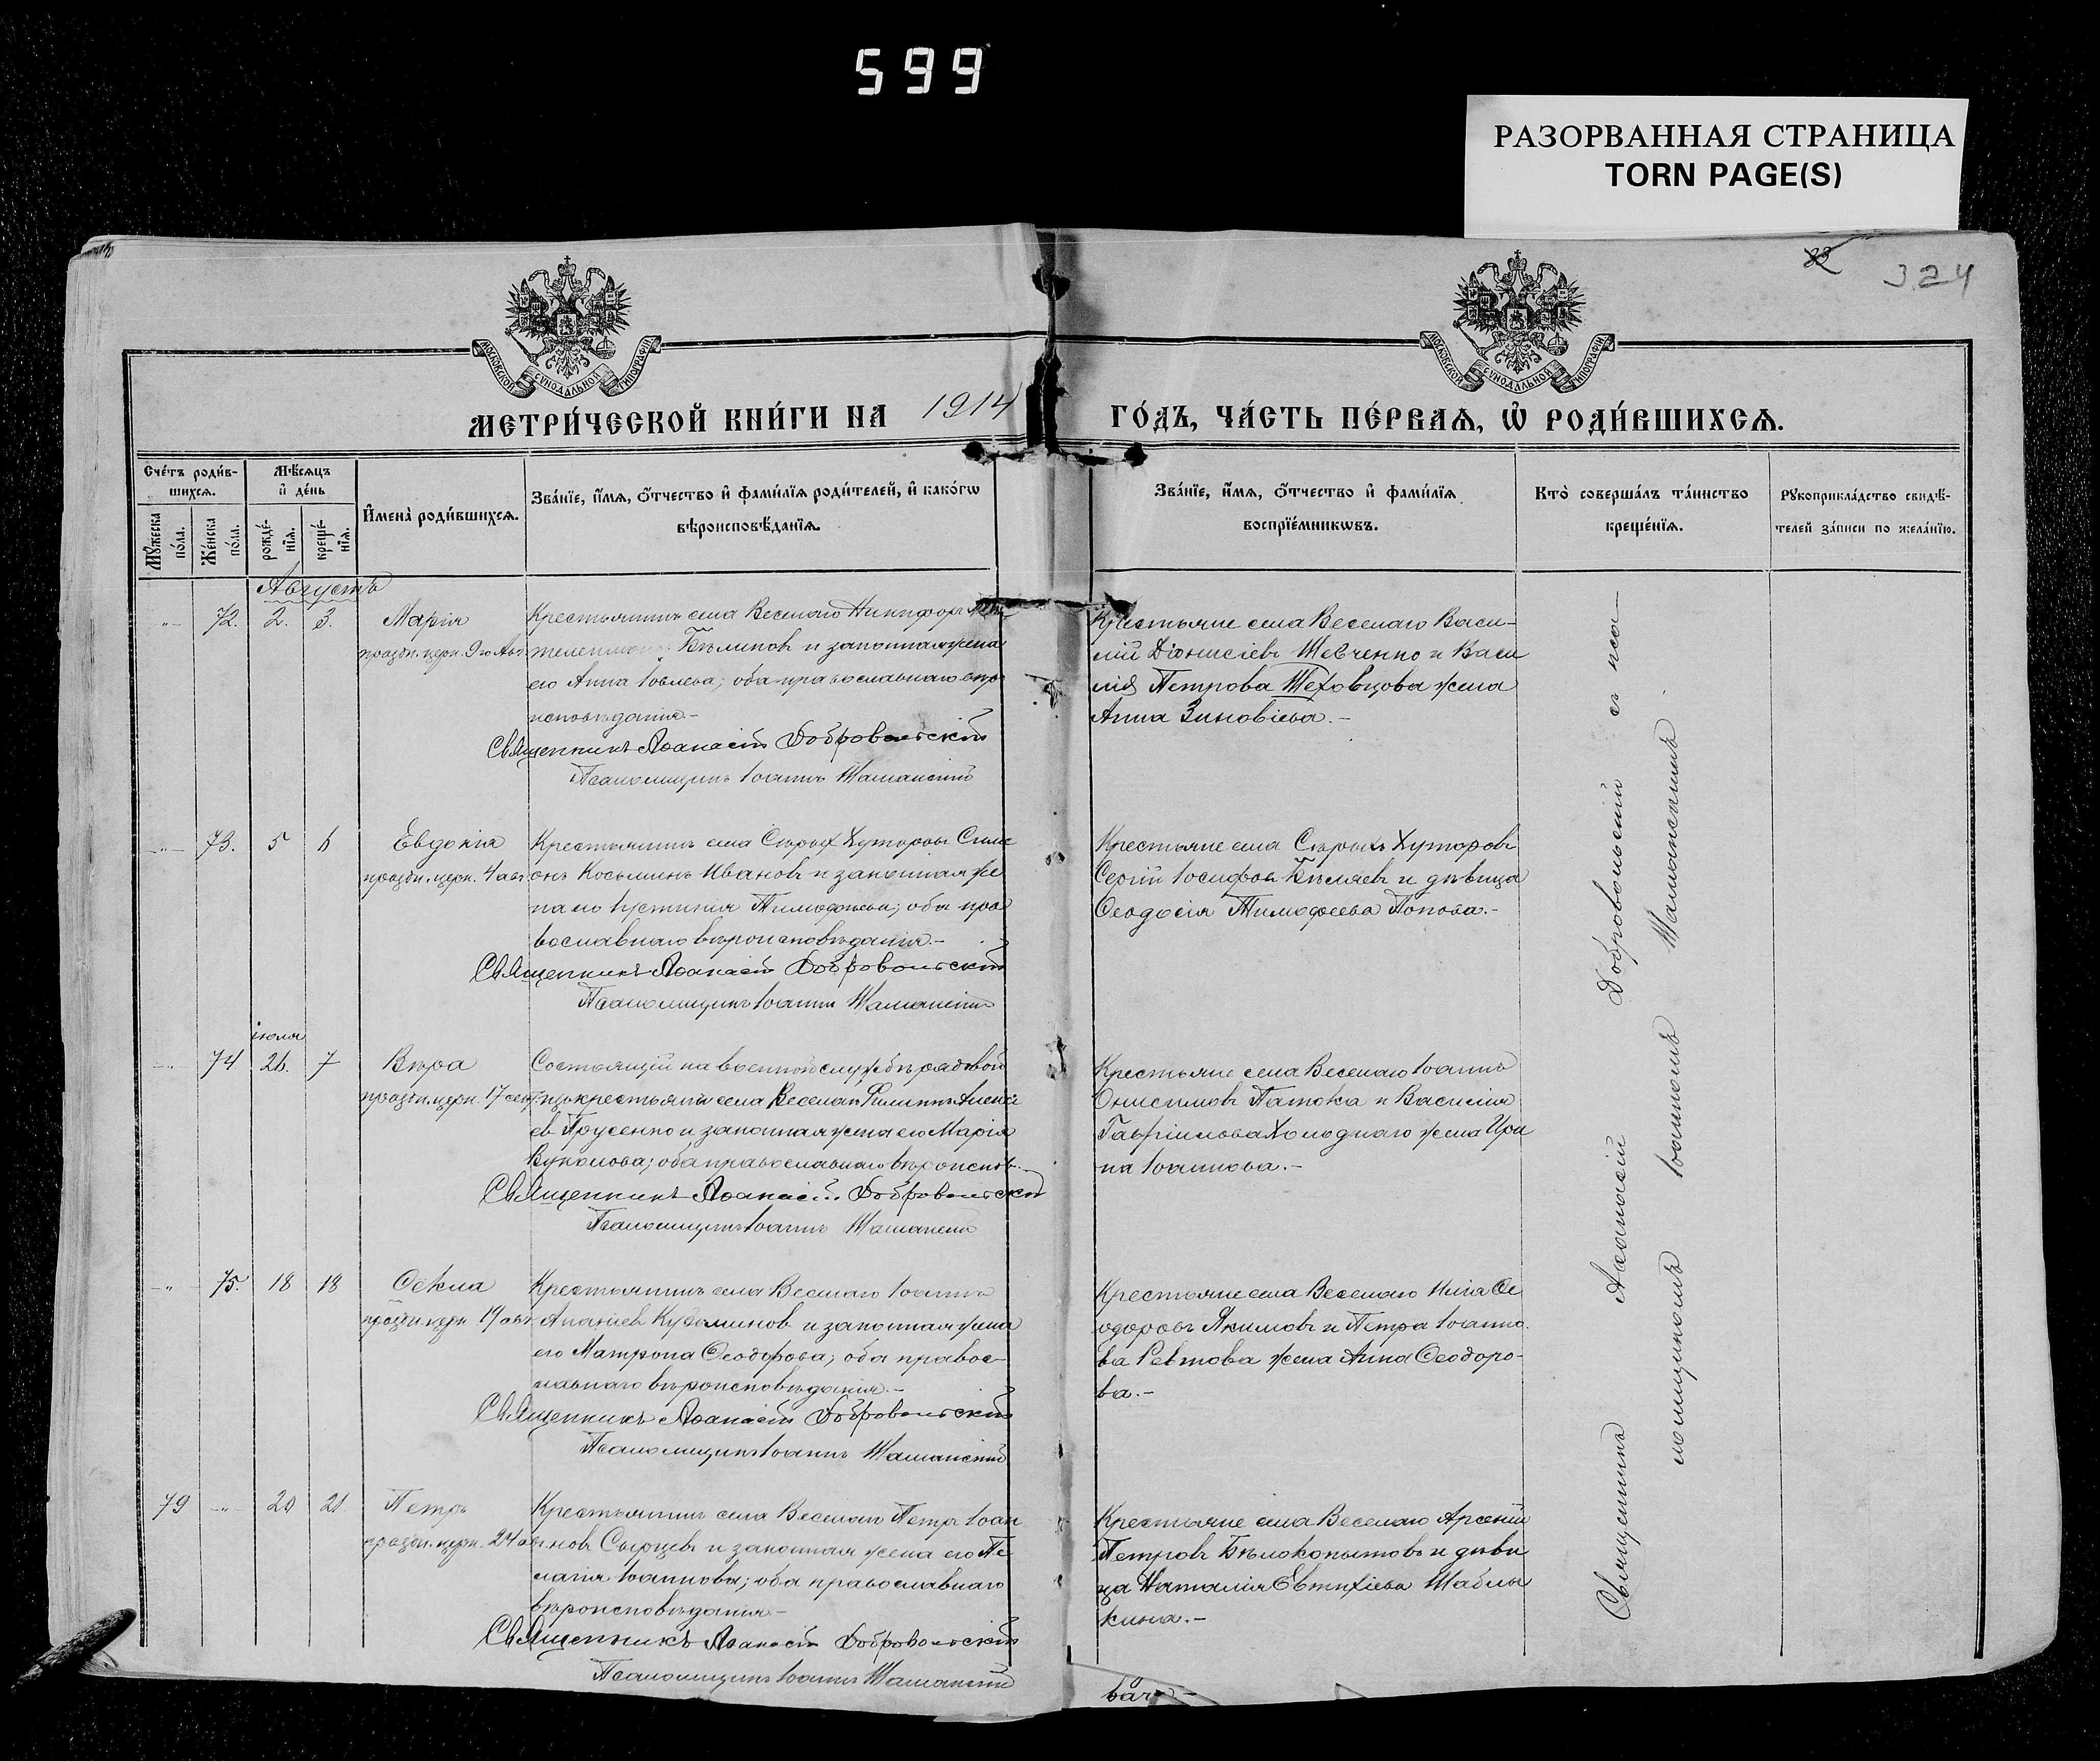 599
РАЗОРВАННАЯ СТРАНИЦА
TORN PAGE(S)
324
МОСКОВСКОЙ СУНОДАЛЬНОЙ ТИПОГРАФІИ
МОСКОВСКОЙ СУНОДАЛЬНОЙ ТИПОГРАФІИ
МЕТРИ́ЧЕСКОЙ КНИ́ГИ НА 1914 ГО́ДЪ, ЧА́СТЬ ПЕ́РВАѦ, Ѡ҆ РОДИ́ВШИХСѦ.
Сче́тъ роди́в-
шихсѧ.
Мꙋ́жеска по́ла.
Же́нска по́ла.
Мѣ́сѧцъ и҆ де́нь
рожде́-
нїѧ.
креще́-
нїѧ.
И҆мена̀ роди́вшихсѧ.
Зва́нїе, и҆́мѧ, ѻ҆́тчество и҆ фами́лїѧ роди́телей, и҆ како́гѡ
вѣроисповѣ́данїѧ.
Зва́нїе, и҆́мѧ, ѻ҆́тчество и҆ фами́лїѧ
воспрїе́мникѡвъ.
Кто̀ соверша́лъ та́инство
креще́нїѧ.
Рꙋкоприкла́дство свидѣ́-
телей за́писи по жела́нїю.
Августъ
72. 2. 3. Марія
праздн. церн. 9го Авг.
Крестьянинъ села Веселаго Никифоръ
Бѣликовъ и законная жена
его Анна Іовлева; оба православнаго
исповѣданія.-
Священникъ Аѳанасій Добровольскій
Псаломщикъ Іоаннъ Шаманскій
Крестьяне села Веселаго Васи-
лій Діонисіевъ Шевченко и Васи
лія Петрова Шеховцова жена
Анна Зиновіева.-
73. 5 6 Евдокія
праздн. церн. 4 авг.
Крестьянинъ села Сѣрыхъ Хуторовъ Симе
онъ Косьминъ Ивановъ и законная же
на его Іустинія Тимоѳеева; оба пра
вославнаго вѣроисповѣданія.-
Священникъ Аѳанасій Добровольскій
Псаломщикъ Іоаннъ Шаманскій
Крестьяне села Сѣрыхъ Хуторовъ
Сергій Іосифовъ Бѣляевъ и дѣвица
Ѳеодосія Тимоѳеева Попова.-
іюля
74 26. 7 Вѣра
праздн. церн. 17 сент.
Состоящій на военной службѣ рядовой
изъ крестьянъ села Веселаго Филиппъ Алексѣ
евъ Прусенко и законная жена его Марія
Вуколова; оба православнаго вѣроиспов.
Священникъ Аѳанасій Добровольскій
Псаломщикъ Іоаннъ Шаманскій
Крестьяне села Веселаго Іоаннъ
Онисимовъ Патока и Василія
Гавріилова Холоднаго жена Ири
на Іоаннова.-
75. 18 18 Ѳекла
праздн. церн.
Крестьянинъ села Веселаго Іоаннъ
и законная жена
его Матрона Ѳеодорова; оба правос-
лавнаго вѣроисповѣданія.-
Священникъ Аѳанасій Добровольскій
Псаломщикъ Іоаннъ Шаманскій
Крестьяне села Веселаго Илія Ѳе
одоровъ Якимовъ и Петра Іоанно
ва Ревтова жена Анна Ѳеодоро-
ва.-
79 20 21 Петръ
праздн. церн. 24 авг.
Крестьянинъ села Веселаго Петръ Іоан
новъ Сырцевъ и законная жена его Пе
лагія Іоаннова; оба православнаго
вѣроисповѣданія.-
Священникъ Аѳанасій Добровольскій
Псаломщикъ Іоаннъ Шаманскій
Крестьяне села Веселаго Арсеній
Петровъ Бѣлокопытовъ и дѣви
ца Наталія Евтихіева Шаблы
кина.-
Священникъ Аѳанасій Добровольскій съ пса-
ломщикомъ Іоанномъ Шаманскимъ